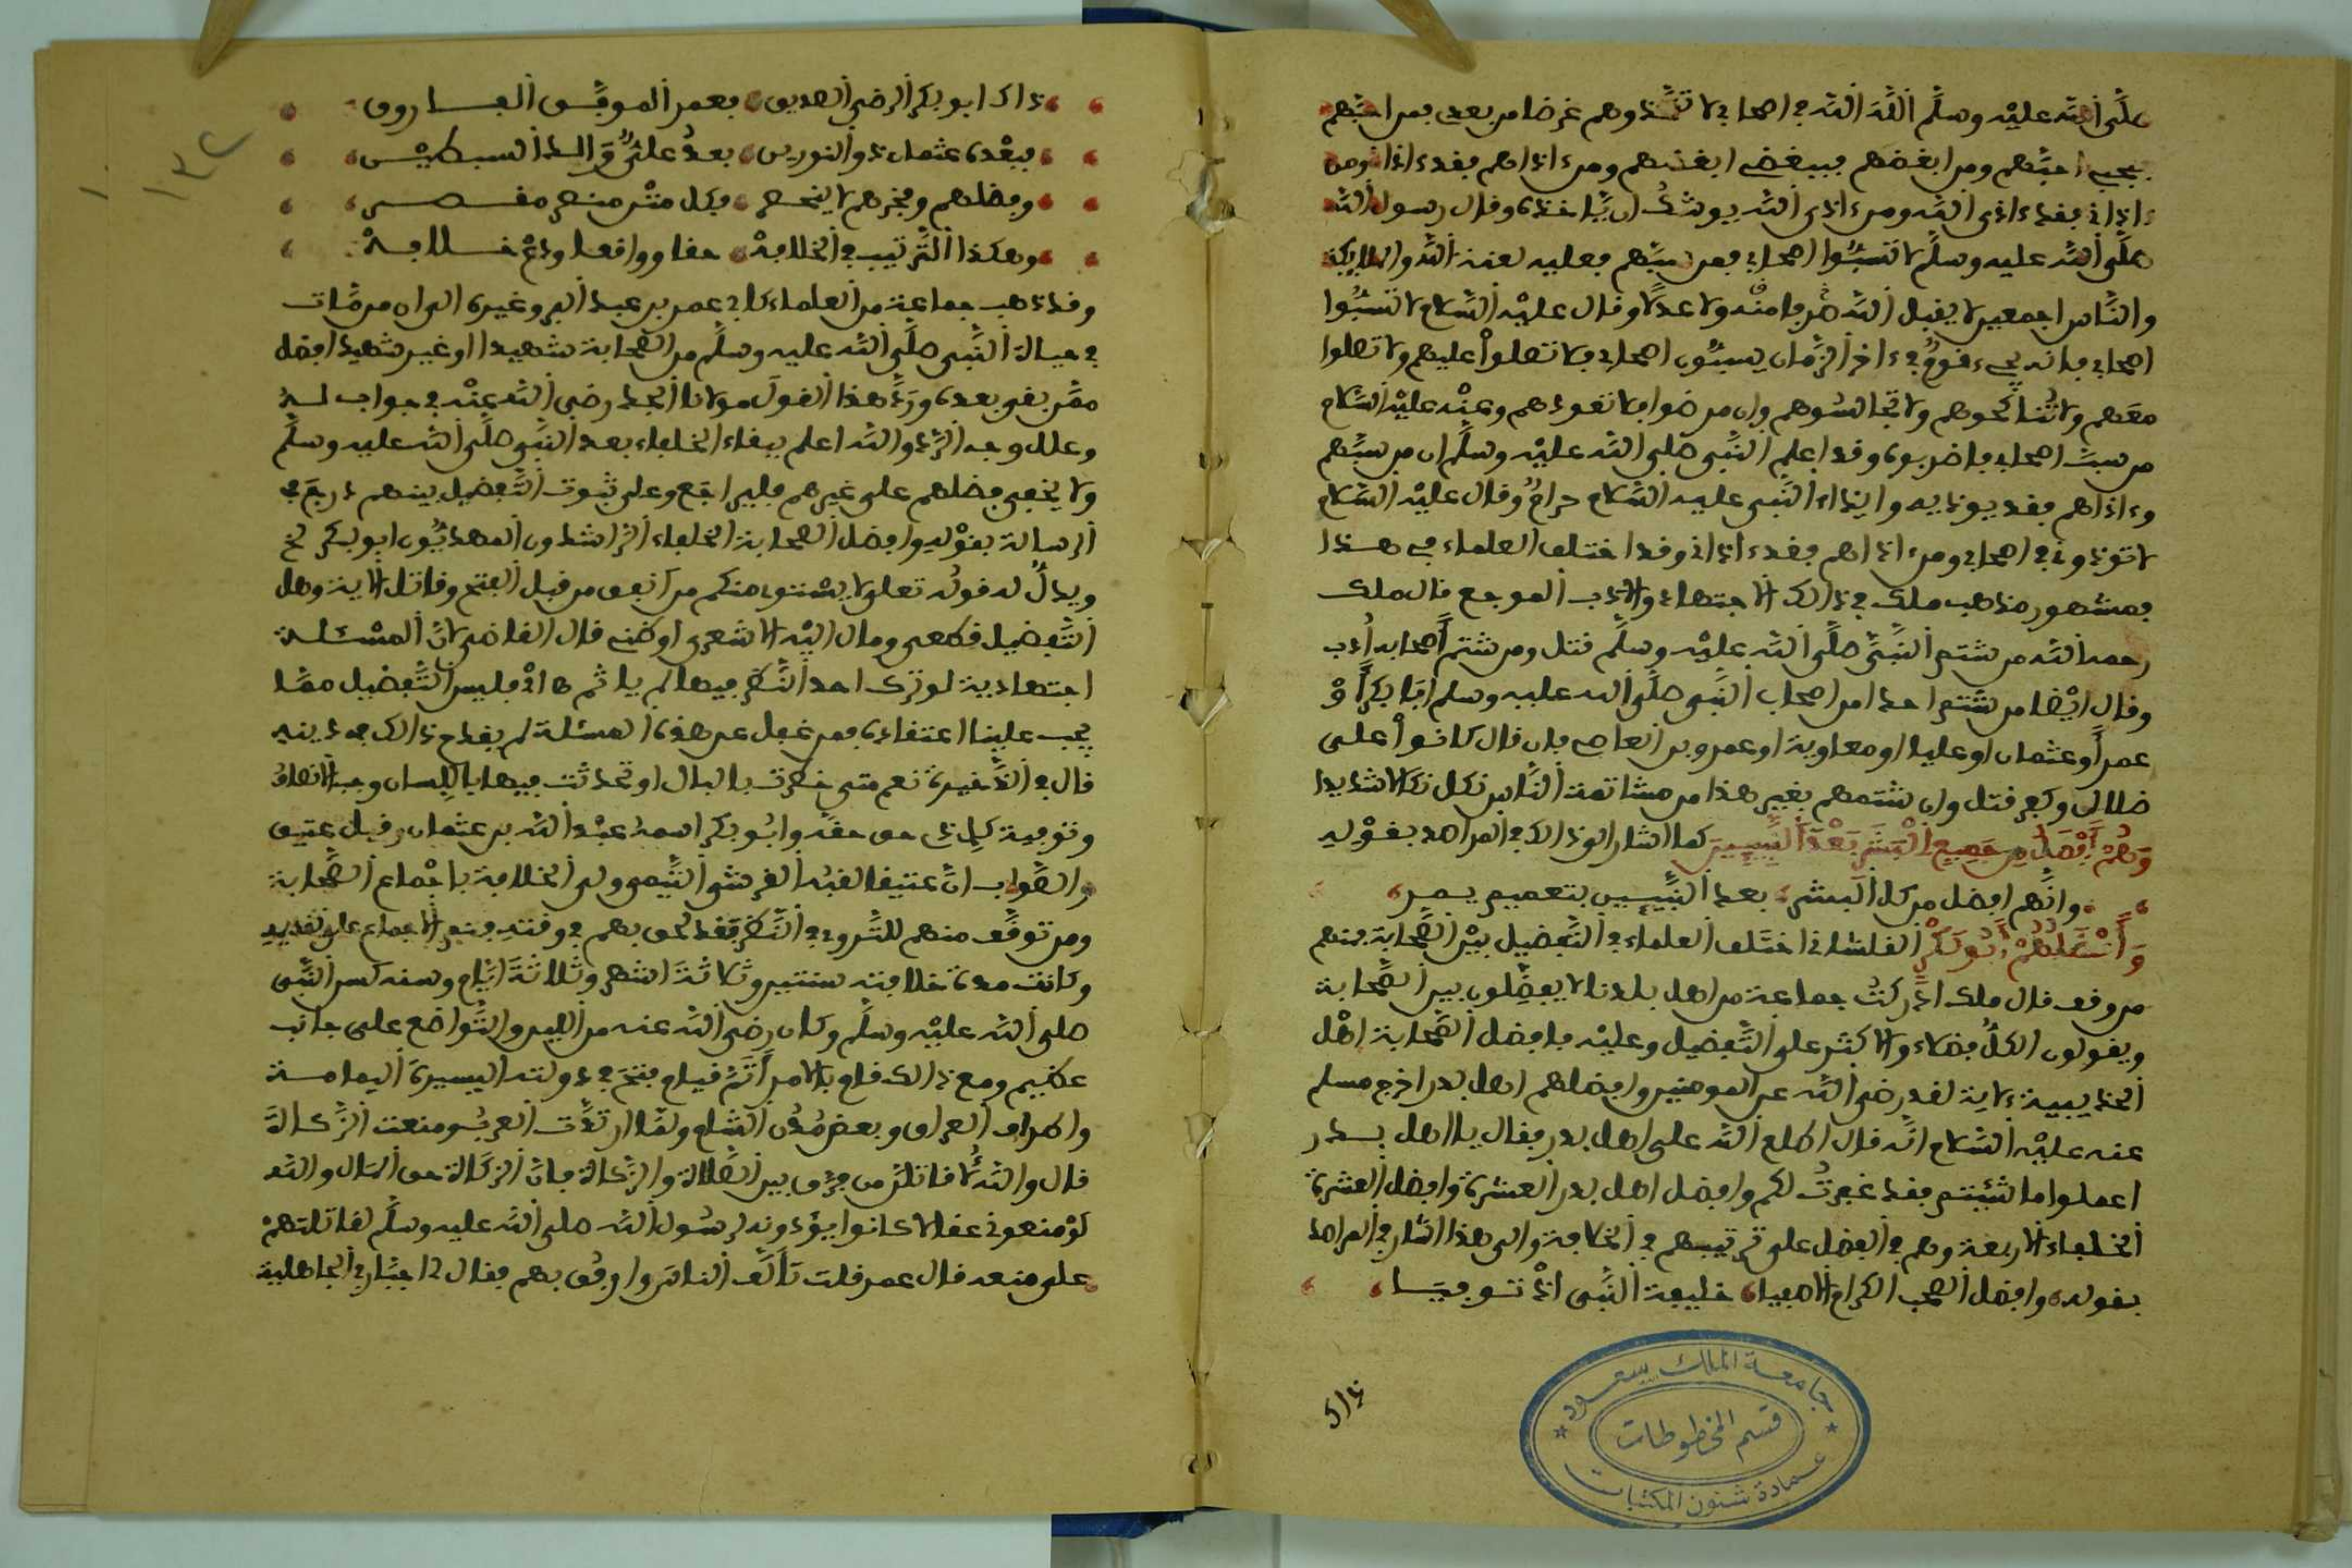 صلَّى الله عليْه وسلَّم اللَّهَ اللَّه في اصحابي لا تتَّخذوهم غرضا من بعدي فمن احبَّهم
فبحبي احبَّهم ومن ابغضهم فببغضي ابغضهم ومن ءاذاهم فقد ءاذاني ومن
ءاذاني فقد ءاذى الله ومن ءاذى الله يوشكُ ان يَّاخذه وقال رسول الله
صلَّى الله عليه وسلَّم لا تسبُّوا اصحابي فمن سبَّهم فعليه لعنة الله والملايكة
والنَّاس اجمعين لا يقبل الله صرفا منْه ولا عدلًا وقال عليْه السَّلام لا تسبُّوا
اصحابي فانه يجيء قومٌ في ءاخر الزَّمان يسبُّون اصحابي فلا تصلواْ عليهم ولا تصلوا
معَهم ولا تُناكحوهم ولا تجالسُوهم وان مرضوا فلا تعودهم وعنْه عليْه السَّلام
من سبَّ اصحابي فاضربوه وقد اعلم النَّبي صلى الله عليْه وسلَّم ان من سبَّهم
وءاذاهم فقد يوذيه وايذاء النَّبي عليه السَّلام حرامٌ وقال عليْه السَّلام
لا توذوني في اصحابي ومن ءاذاهم فقد ءاذاني وقد اختلف العلماء في هذا
فمشهور مذهب ملك في ذالك الاجتهاد والادب الموجع قال ملك
رحمه الله من شتم النَّبيَّ صلَّى الله عليْه وسلَّم قتل ومن شتم أصحابه أُدب
وقال ايْضا من شتم احدا من اصحاب النَّبي صلَّى الله عليه وسلم أبا بكر أوْ
عمر أو عثمان او عليا او معاوية او عمرو بن العاص فان قال كانواْ على
ضلال وكفر قتل وان شتمهم بغير هذا من مشاتمة النَّاس نكل نكالا شديدا
وَهُمْ أَفْضَلُ مِن جَمِيعِ الْبَشَرِ بَعْدَ النَّبِيِّينَ كما اشار الى ذالك في المراصد بقوْله
وانَّهم افضل من كل البشر بعد النَّبيِّين بتعميم يمر
وَأَفْضَلُهُمْ أَبُو بَكْرٍ القلشاني اختَلف العلماء في التَّفضيل بيْن الصَّحابة فمنهم
من وقف قال ملك ادْركتُ جماعة من اهل بلدنا لا يفضِّلون بين الصَّحابة
ويقولون الكلُّ فضلاء والاكثر على التَّفضيل وعليْه فافضل الصَّحابة اهْل
الحديبية لاية لقد رضي الله عن المومنين وافضلهم اهل بدر اخرج مسلم
عنه عليْه السَّلام انَّه قال اطلع الله على اهل بدر فقال يا اهل بدر
اعملوا ما شئتم فقد غفرتُ لكم وافضل اهل بدر العشرة وافضل العشرة
الخلفاء الاربعة وهم في الفضل على ترتيبهم في الخلافة والى هذا اشار في المراصد
بقوله وافضل الصحب الكرام الاصفياء خليفة النَّبي اذْ توفيا
ذاك ابو بكر الرضي الصديق فعمر الموفَّق الفاروق
فبعْده عثمان ذو النورين بعدُ عليٌّ وَالد السبطيْن
وفضلهم وفخرهم لا ينحصر فكل مثْن منهم مقصر
وهكذا التَّرتيب في الخلافة حقا وواقعا ودعْ خلافهْ
وقد ذهب جماعة من العلماء كابي عمر بن عبد البر وغيره الى ان من مَّات
في حياة النَّبي صلَّى الله عليه وسلَّم من الصَّحابة شهيدا او غير شهيد افضل
ممَّن بقي بعده وردَّ هذا القولَ مولانا الجد رضي الله عنْه في جواب له
وعلل وجه الرَّد والله اعلم ببقاء الخلفاء بعد النَّبي صلَّى الله عليه وسلَّم
ولا يخفى فضلهم على غيرهم وعلى ثبوت التَّفضيل بينهم درج في
الرسالة بقوْله وافضل الصَّحابة الخلفاء الرَّاشدون المهديُّون ابو بكر الخ
ويدلُّ له قولُه تعلى لا يسْتوي منكم من انفق من قبل الفتح وقاتل الاية وهل
التَّفضيل قطعي ومال اليْه الاشعري او ظني قال القاضي لانَّ المسْئلة
اجتهادية لو ترك احد النَّظر فيها لم ياثم فليس التَّفضيل ممَّا
يجب علينا اعتقاده فمن غفل عن هذه المسئلة لم يقدح ذالك في دينه
قال في الذَّخيرة نعم متى خطرت بالبال او تحدثت فيها باللِّسان وجب الانصافُ
وتوفية كل ذي حق حقَّه وابُو بكر اسمهُ عبْد الله بن عثمان وقيل عتيق
والصَّواب انَّ عتيقا لقبُه القرشي التَّيمي ولي الخلافة باجْماع الصَّحابة
ومن توقَّف منهم للتَّروي في النَّظر فقد لحق بهم في وقته فتم الاجماع على تقديمه
وكانت مدة خلافته سنتين وثلاثةَ اشهر وثلاثةَ ايَّام وسنه كسن النَّبي
صلى الله عليْه وسلَّم وكان رضي الله عنه من اللِّين والتَّواضع على جانب
عظيم ومع ذالك قام بالامر أَتَمَّ قيام ففتحَ في دولته اليسيرة اليمامة
واطراف العراق وبعض مُدُن الشام ولمَّا ارتدَّت العربُ ومنعت الزَّكاة
قال والله لَأقاتلنَّ من فرَّق بين الصَّلاة والزَّكاة فانَّ الزكاة حق المال والله
لوْ منعوني عقالا كانوا يؤدونه لرسُول الله صلى الله عليه وسلَّم لقاتلتهمْ
على منعه قال عمر فقلت تأَلَّف الناس وارفُق بهم فقال لي اجبَّار في الجاهلية
جامعة الملك سعود
قسم المخطوطات
عمادة شئون المكتبات